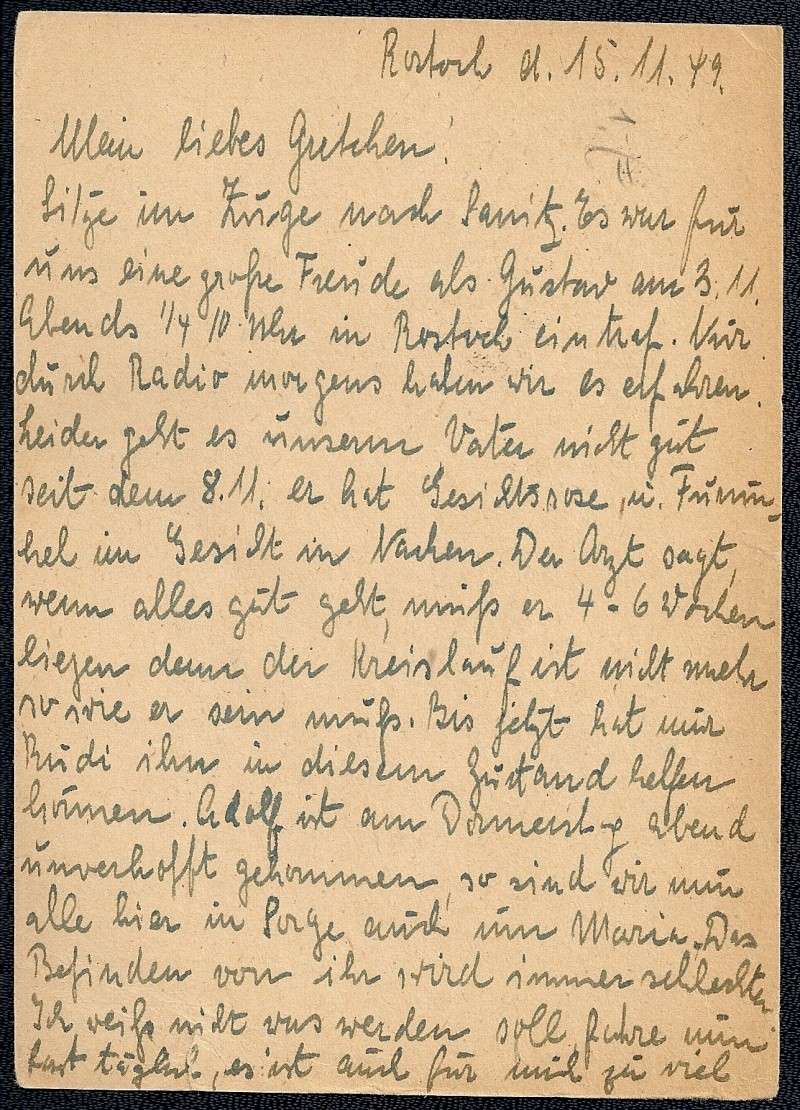 Rostock d. 15.11.49.
Mein liebes Gretchen!
Sitze im Zuge nach Sanitz. Es war für
uns eine große Freude als Gustav am 3.11.
Abends 1/4 10 Uhr in Rostock eintraf. Nur
durch Radio morgens haben wir es erfahren.
Leider geht es unserm Vater nicht gut
seit dem 8.11. er hat Gesichtsrose, u. Furun-
kel im Gesicht in Nacken. Der Arzt sagt,
wenn alles gut geht, muß er 4-6 Wochen
liegen denn der Kreislauf ist nicht mehr
so wie er sein muß. Bis jetzt hat nur
Rudi ihn in diesem Zustand helfen
können. Adolf ist am Donnerstag abend
unverhofft gekommen, so sind wir nun
alle hier in Sorge auch um Maria. Das
Befinden von ihr wird immer schlechter
Ich weiß nicht was werden soll, fahre nun
fast täglich, es ist auch für mich zu viel